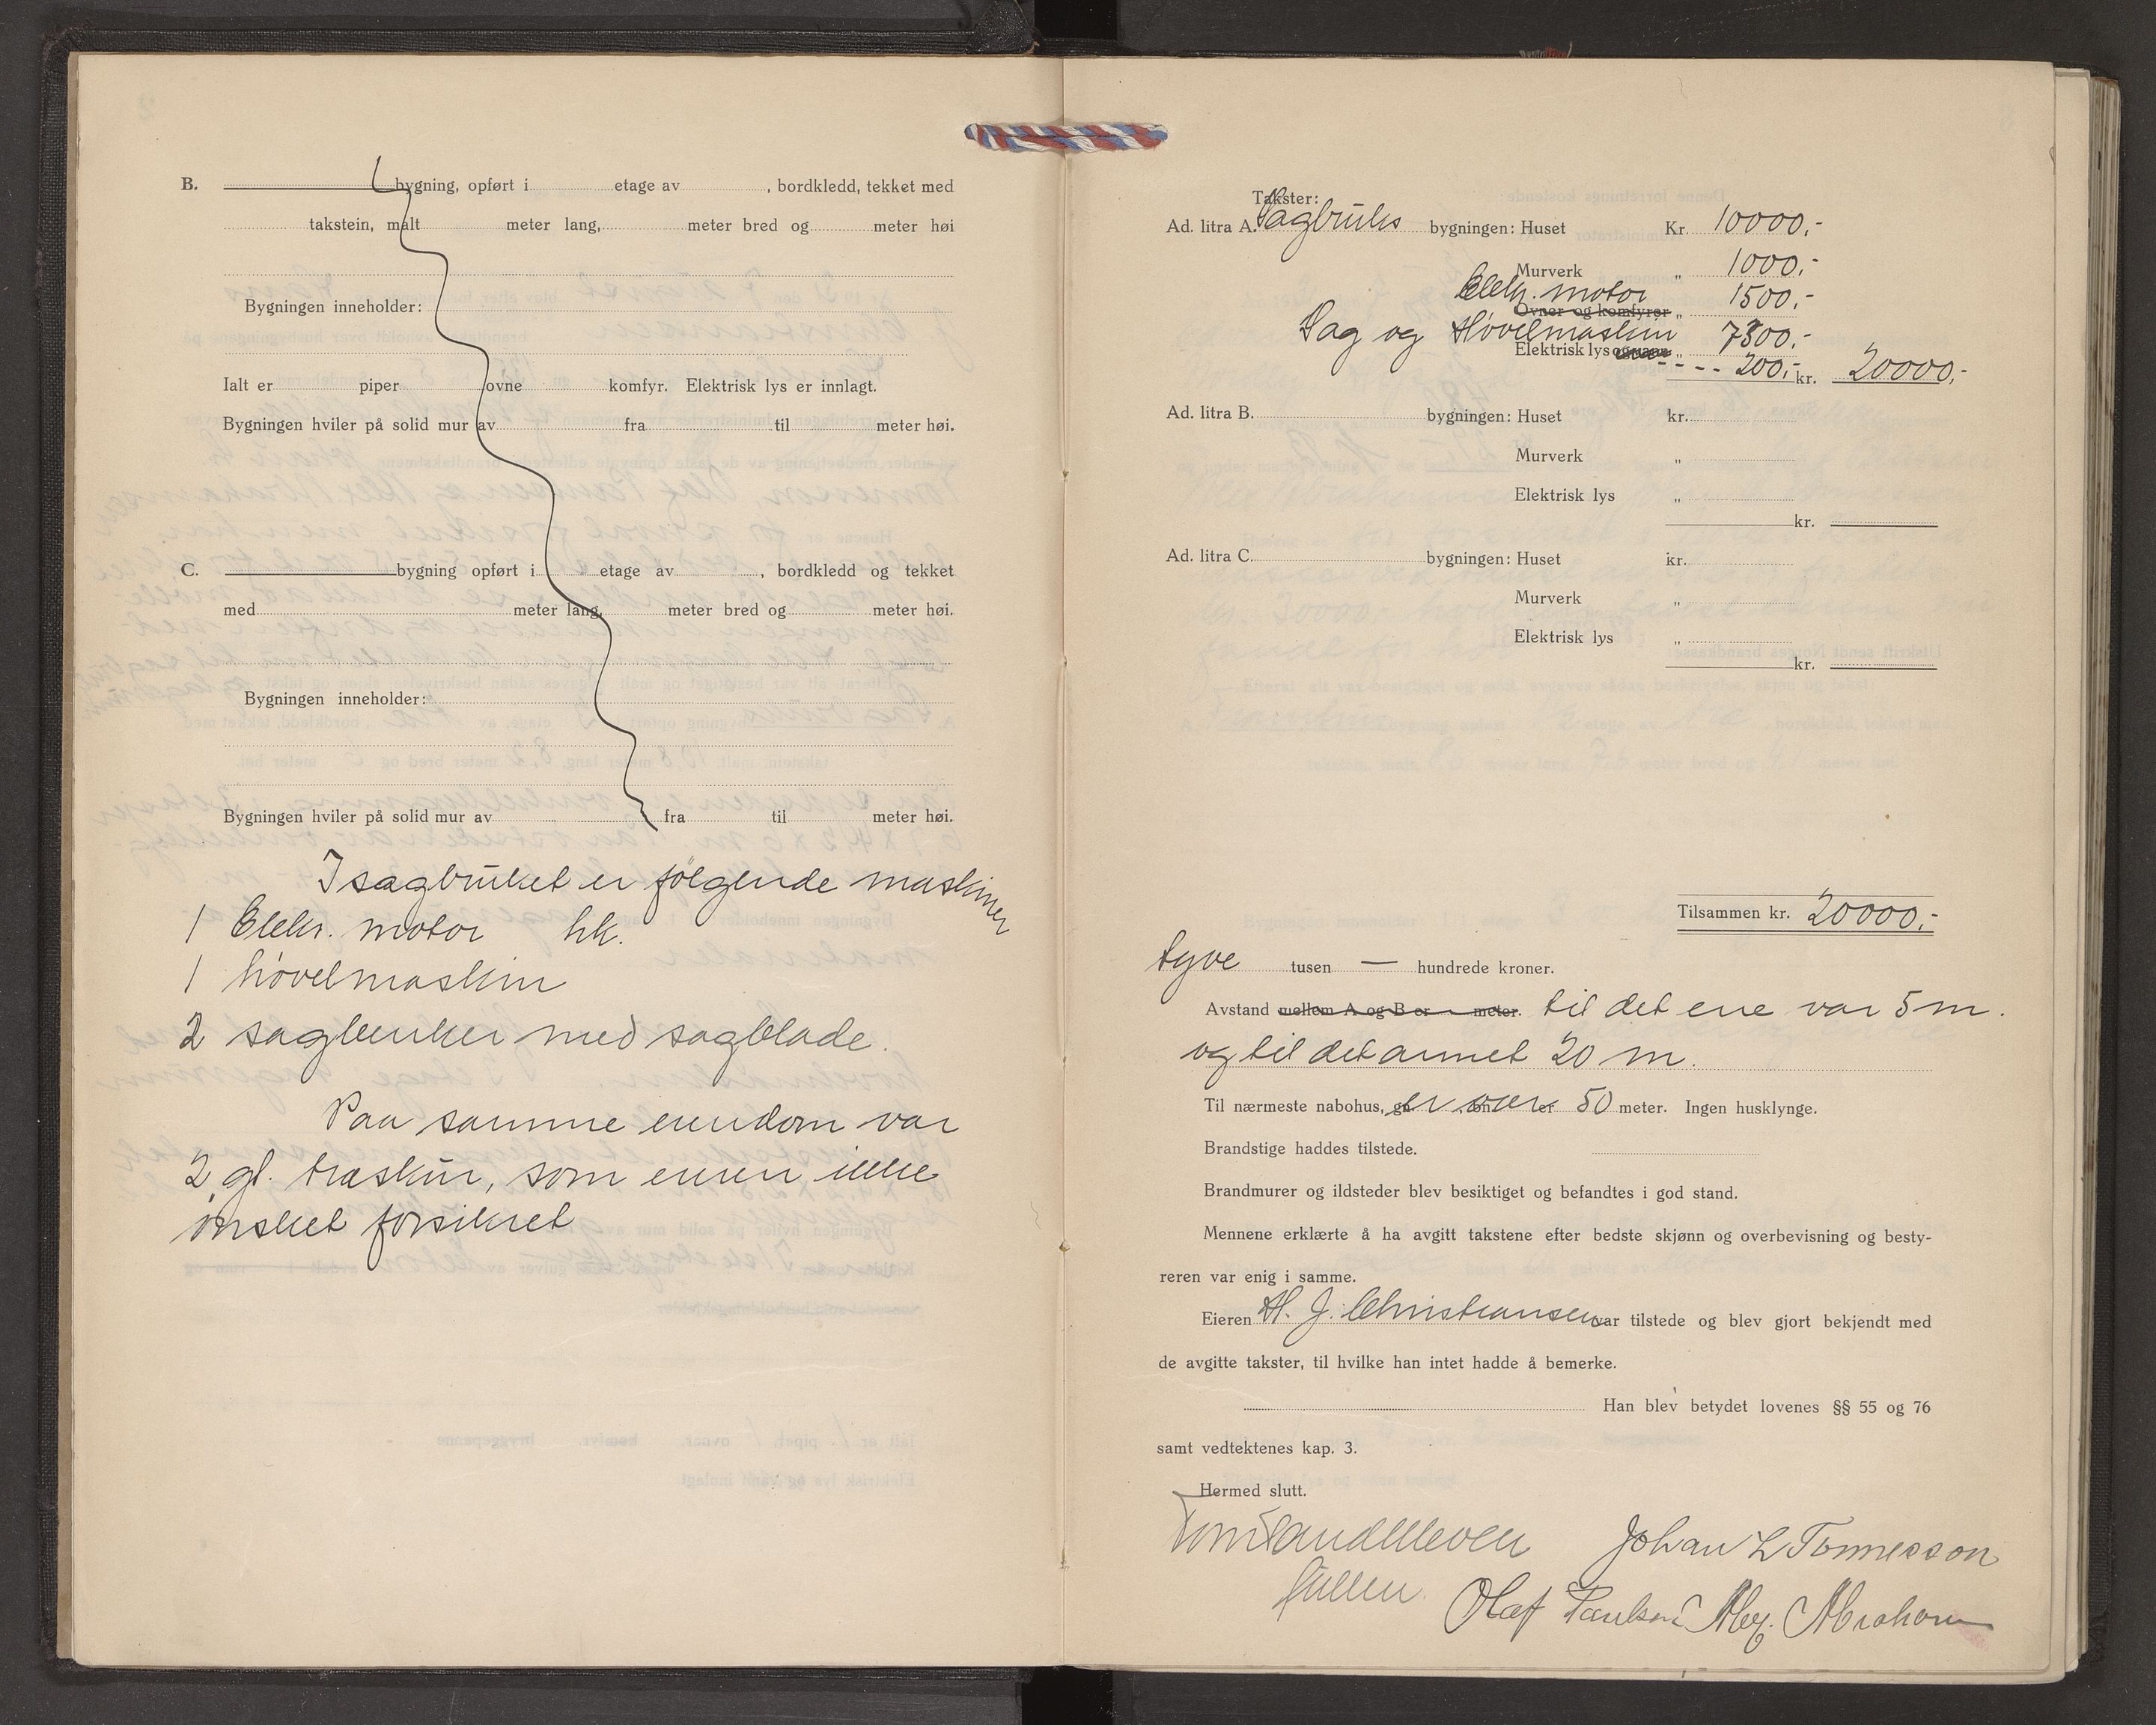 B. bygning, opført i etage av , bordkledd, tekket med
takstein, målt meter lang, meter bred og meter høi
Bygningen inneholder:
Ialt er piper ovne komfyr. Elektrisk lys er innlagt.
Bygningen hviler på solid mur av fra til meter høi.
C. bygning opført i etage av , bordkledd og tekket
med meter lang, meter bred og meter høi.
Bygningen inneholder:
Bygningen hviler på solid mur av fra til meter høi.
I sagbruket er følgende maskiner
1 Elektr. motor hk.
1 høvelmaskin
2 sagbenker med sagblade.
Paa samme eiendom var
2 gl. træskur, som eieren ikke
ønsket forsikret
Takster:
Ad. litra A. Sagbruks bygningen: Huset Kr. 10000,-
Murverk „ 1000,-
Elektr. motor 1500,-
Ovner og komfyrer „
Sag og Høvelmaskin 7300,-
Elektrisk lys „ - - - - 200,- kr. 20000,-
Ad. litra B. bygningen: Huset kr.
Murverk „
Elektrisk lys „
kr.
Ad. litra C. bygningen: Huset kr.
Murverk „
Elektrisk lys „
kr.
Tilsammen kr. 20000,-
tyve tusen — hundrede kroner.
Avstand mellem A og B er meter. til det ene var 5 m.
og til det annet 20 m.
Til nærmeste nabohus, er over 50 meter. Ingen husklynge.
Brandstige haddes tilstede.
Brandmurer og ildsteder blev besiktiget og befandtes i god stand.
Mennene erklærte å ha avgitt takstene efter bedste skjønn og overbevisning og besty-
reren var enig i samme.
Eieren H. J. Christiansen var tilstede og blev gjort bekjendt med
de avgitte takster, til hvilke han intet hadde å bemerke.
Han blev betydet lovenes §§ 55 og 76
samt vedtektenes kap. 3.
Hermed slutt.
Tom Sandkleven Johan L Tønnesson
Olaf Paulsen Alex. Abraham